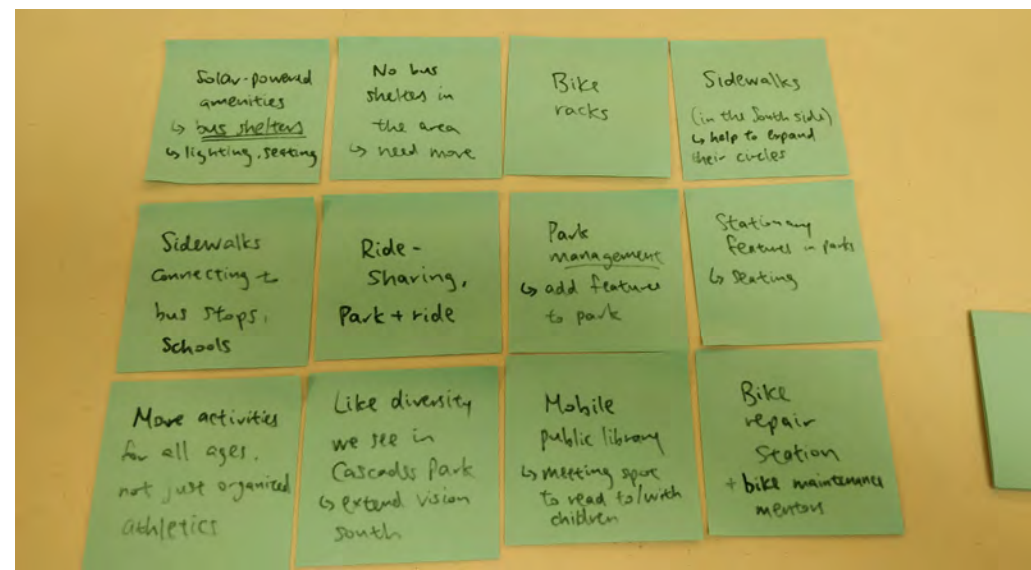 Solar-powered
amenities
↳ bus shelters
↳ lighting, seating
No bus
shelters in
the area
↳ need more
Bike
racks
Sidewalks
(in the South side)
↳ help to expand
their circles
Sidewalks
Connecting to
bus stops,
Schools
Ride-
Sharing,
Park + ride
Park
management
↳ add features
to park
Stationary
features in parks
↳ seating
More activities
for all ages,
not just organized
athletics
Like diversity
we see in
Cascades Park
↳ extend vision
south
Mobile
public library
↳ meeting spot
to read to/with
children
Bike
repair
Station
+ bike maintenance
mentors